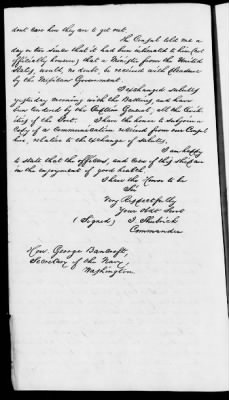 dont care how they are to get out.
The Consul told me a
day or two since that it had been intimated to him (not
officially however) that a Minister from the United
States, would, no doubt, be received with pleasure
by the Mexican Government.
I exchanged salutes
yesterday morning with the Battery, and have
been tendered by the Captain General, all the civil-
ities of the Port. I have the honor to subjoin a
Copy of a Communication received from our Consul
here, relative to the exchange of salutes.
I am happy
to state that the officers, and crew of this ship are
in the enjoyment of good health.
I have the Honor to be
Sir
Very Respectfully
Your Obdt Servt
(Signed) I. Shubrick
Commander
Hon. George Bancroft,
Secretary of the Navy,
Washington.